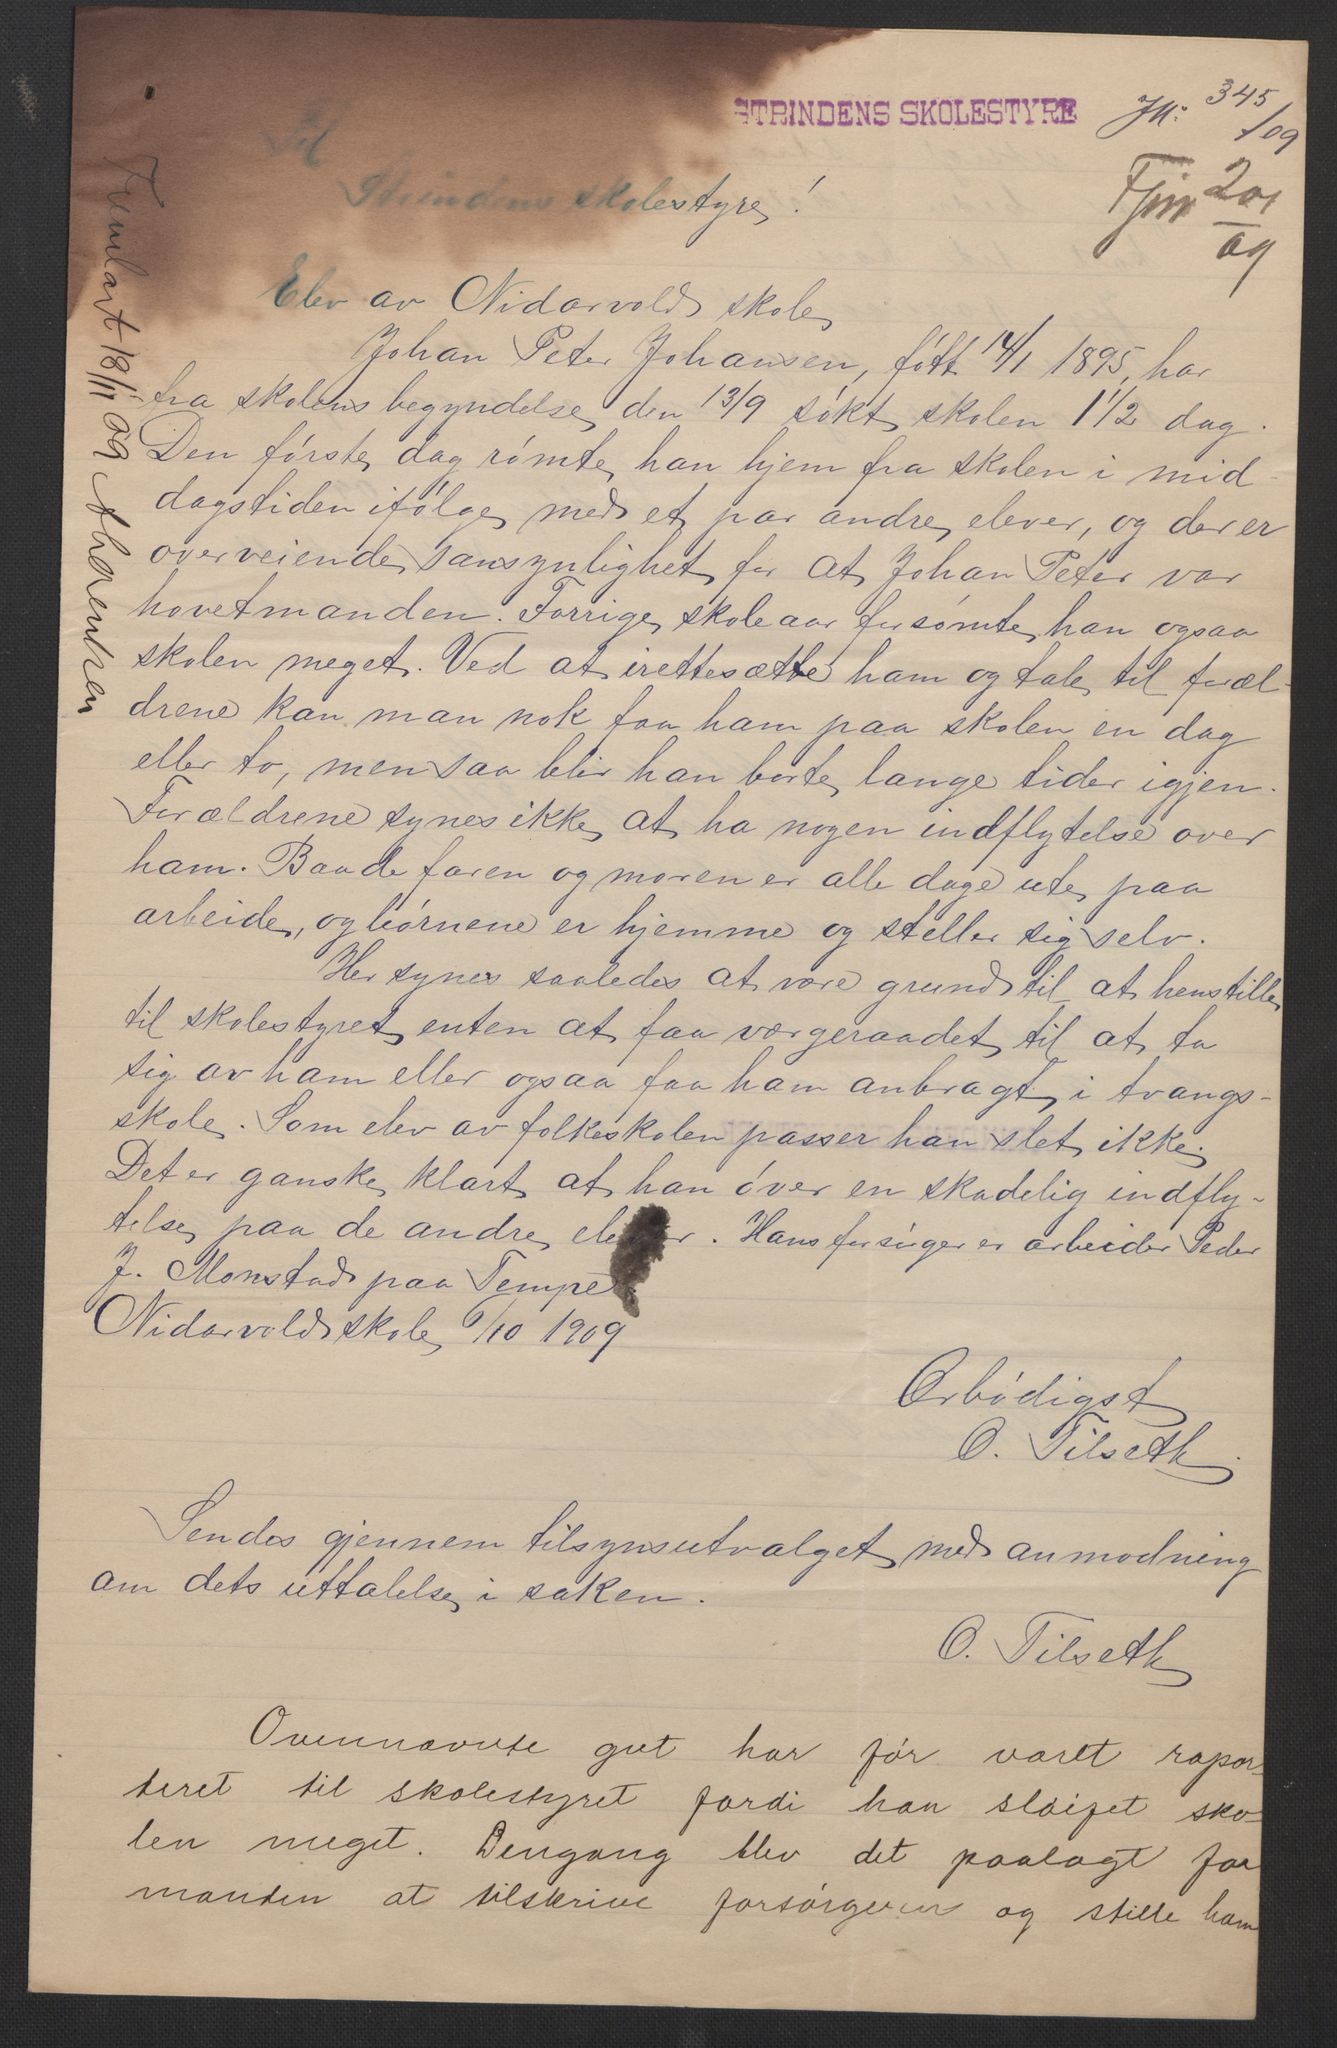 STRINDENS SKOLESTYRE
J№: 345/09
Til
Strindens skolestyre!
Elev av Nidarvold skole
Johan Peter Johansen, født 14/1 1895, har
fra skolens begyndelse den 13/9 søkt skolen 1 1/2 dag.
Den første dag rømte han hjem fra skolen i mid-
dagstiden ifølge med et par andre elever, og der er
overveiende sansynlighet for at Johan Peter var
hovetmanden. Forrige skoleaar forsømte han ogsaa
skolen meget. Ved at irettesætte ham og tale til foræl-
drene kan man nok faa ham paa skolen en dag
eller to, men saa blir han borte lange tider igjen.
Forældrene synes ikke at ha nogen indflytelse over
ham. Baade faren og moren er alle dage ute paa
arbeide, og børnene er hjemme og steller sig selv.
Her synes saaledes at være grund til at henstille
til skolestyret enten at faa vergeraadet til at ta
sig av ham eller ogsaa faa ham anbragt i tvangs-
skole. Som elev av folkeskolen passer han slet ikke.
Det er ganske klart at han øver en skadelig indfly-
telse paa de andre elever. Hans forsørger er arbeider Peder
J. Monstad paa Tempe.
Nidarvold skole 9/10 1909
Ærbødigst
O. Tilseth.
Sendes gjennem tilsynsutvalget med anmodning
om dets uttalelse i saken.
O. Tilseth
Ovennævnte gut har før været rapor-
teret til skolestyret fordi han sløifet sko-
len meget. Dengang blev det paalagt for
manden at tilskrive forsørgeren og stille ham
Fremlagt 18/11 09